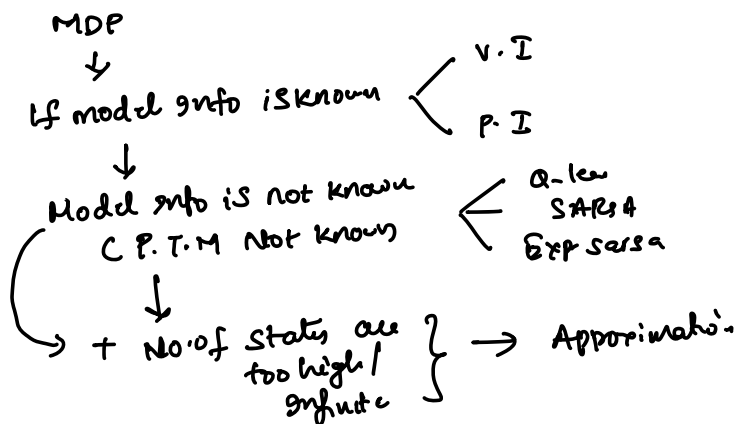 MDP
If model info is known
V.I
P.I
Model info is not known
C P.T.M Not known)
Q-lea
SARSA
Exp sarsa
+ No.of states are
too high/
infinite
→ Apporimatio.